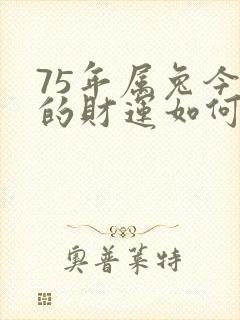 75年属兔今
的财运如何
奥普莱特